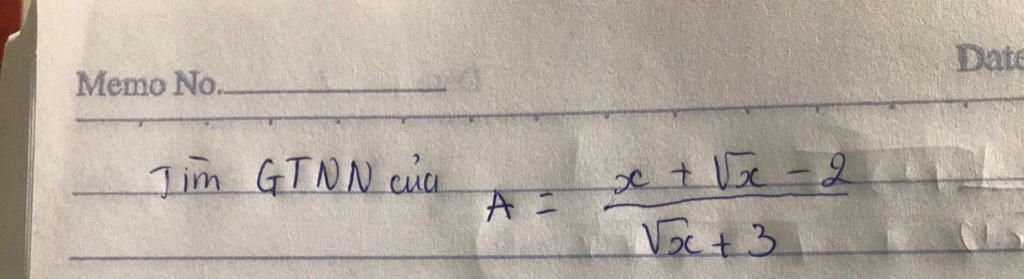 Memo No.
Date
Tìm GTNN của A = \frac{x + \sqrt{x} - 2}{\sqrt{x} + 3}